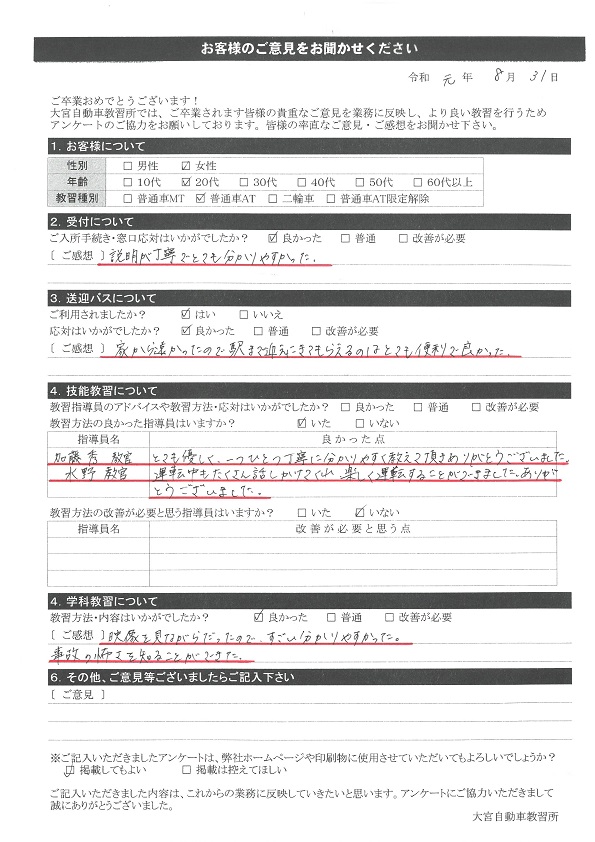 お客様のご意見をお聞かせください
令和 元 年 8 月 31 日
ご卒業おめでとうございます！
大宮自動車教習所では、ご卒業されます皆様の貴重なご意見を業務に反映し、より良い教習を行うため
アンケートのご協力をお願いしております。皆様の率直なご意見・ご感想をお聞かせ下さい。
1. お客様について
性別 □ 男性 ☑ 女性
年齢 □ 10代 ☑ 20代 □ 30代 □ 40代 □ 50代 □ 60代以上
教習種別 □ 普通車MT ☑ 普通車AT □ 二輪車 □ 普通車AT限定解除
2. 受付について
ご入所手続き・窓口応対はいかがでしたか？ ☑ 良かった □ 普通 □ 改善が必要
[ ご感想 ] 説明が丁寧でとても分かりやすかった。
3. 送迎バスについて
ご利用されましたか？ ☑ はい □ いいえ
応対はいかがでしたか？ ☑ 良かった □ 普通 □ 改善が必要
[ ご感想 ] 家から遠かったので駅まで迎えにきてもらえるのはとても便利で良かった。
4. 技能教習について
教習指導員のアドバイスや教習方法・応対はいかがでしたか？ □ 良かった □ 普通 □ 改善が必要
教習方法の良かった指導員はいますか？ ☑ いた □ いない
指導員名 良かった点
加藤秀 教官 とても優しく、一つひとつ丁寧に分かりやすく教えて頂きありがとうございました。
水野 教官 運転中もたくさん話しかけてくれ 楽しく運転することができました。ありが
とうございました。
教習方法の改善が必要と思う指導員はいますか？ □ いた ☑ いない
指導員名 改善が必要と思う点
4. 学科教習について
教習方法・内容はいかがでしたか？ ☑ 良かった □ 普通 □ 改善が必要
[ ご感想 ] 映像を見ながらだったので、すごい分かりやすかった。
事故の怖さを知ることができた。
6. その他、ご意見等ございましたらご記入下さい
[ ご意見 ]
※ご記入いただきましたアンケートは、弊社ホームページや印刷物に使用させていただいてもよろしいでしょうか？
☑ 掲載してもよい □ 掲載は控えてほしい
ご記入いただきました内容は、これからの業務に反映していきたいと思います。アンケートにご協力いただきまして
誠にありがとうございました。
大宮自動車教習所